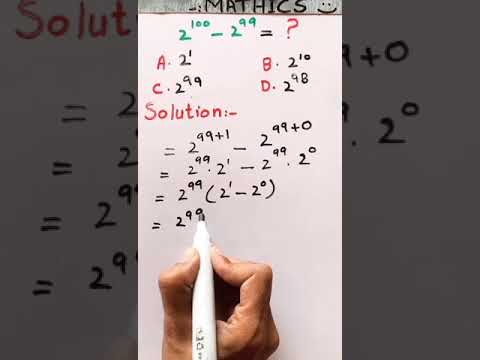 -: MATHICS :)
2¹⁰⁰ - 2⁹⁹ = ?
A. 2¹ B. 2¹⁰
C. 2⁹⁹ D. 2⁹⁸
Solution:-
= 2⁹⁹⁺¹ - 2⁹⁹⁺⁰
= 2⁹⁹ · 2¹ - 2⁹⁹ · 2⁰
= 2⁹⁹ (2¹ - 2⁰)
= 2⁹⁹